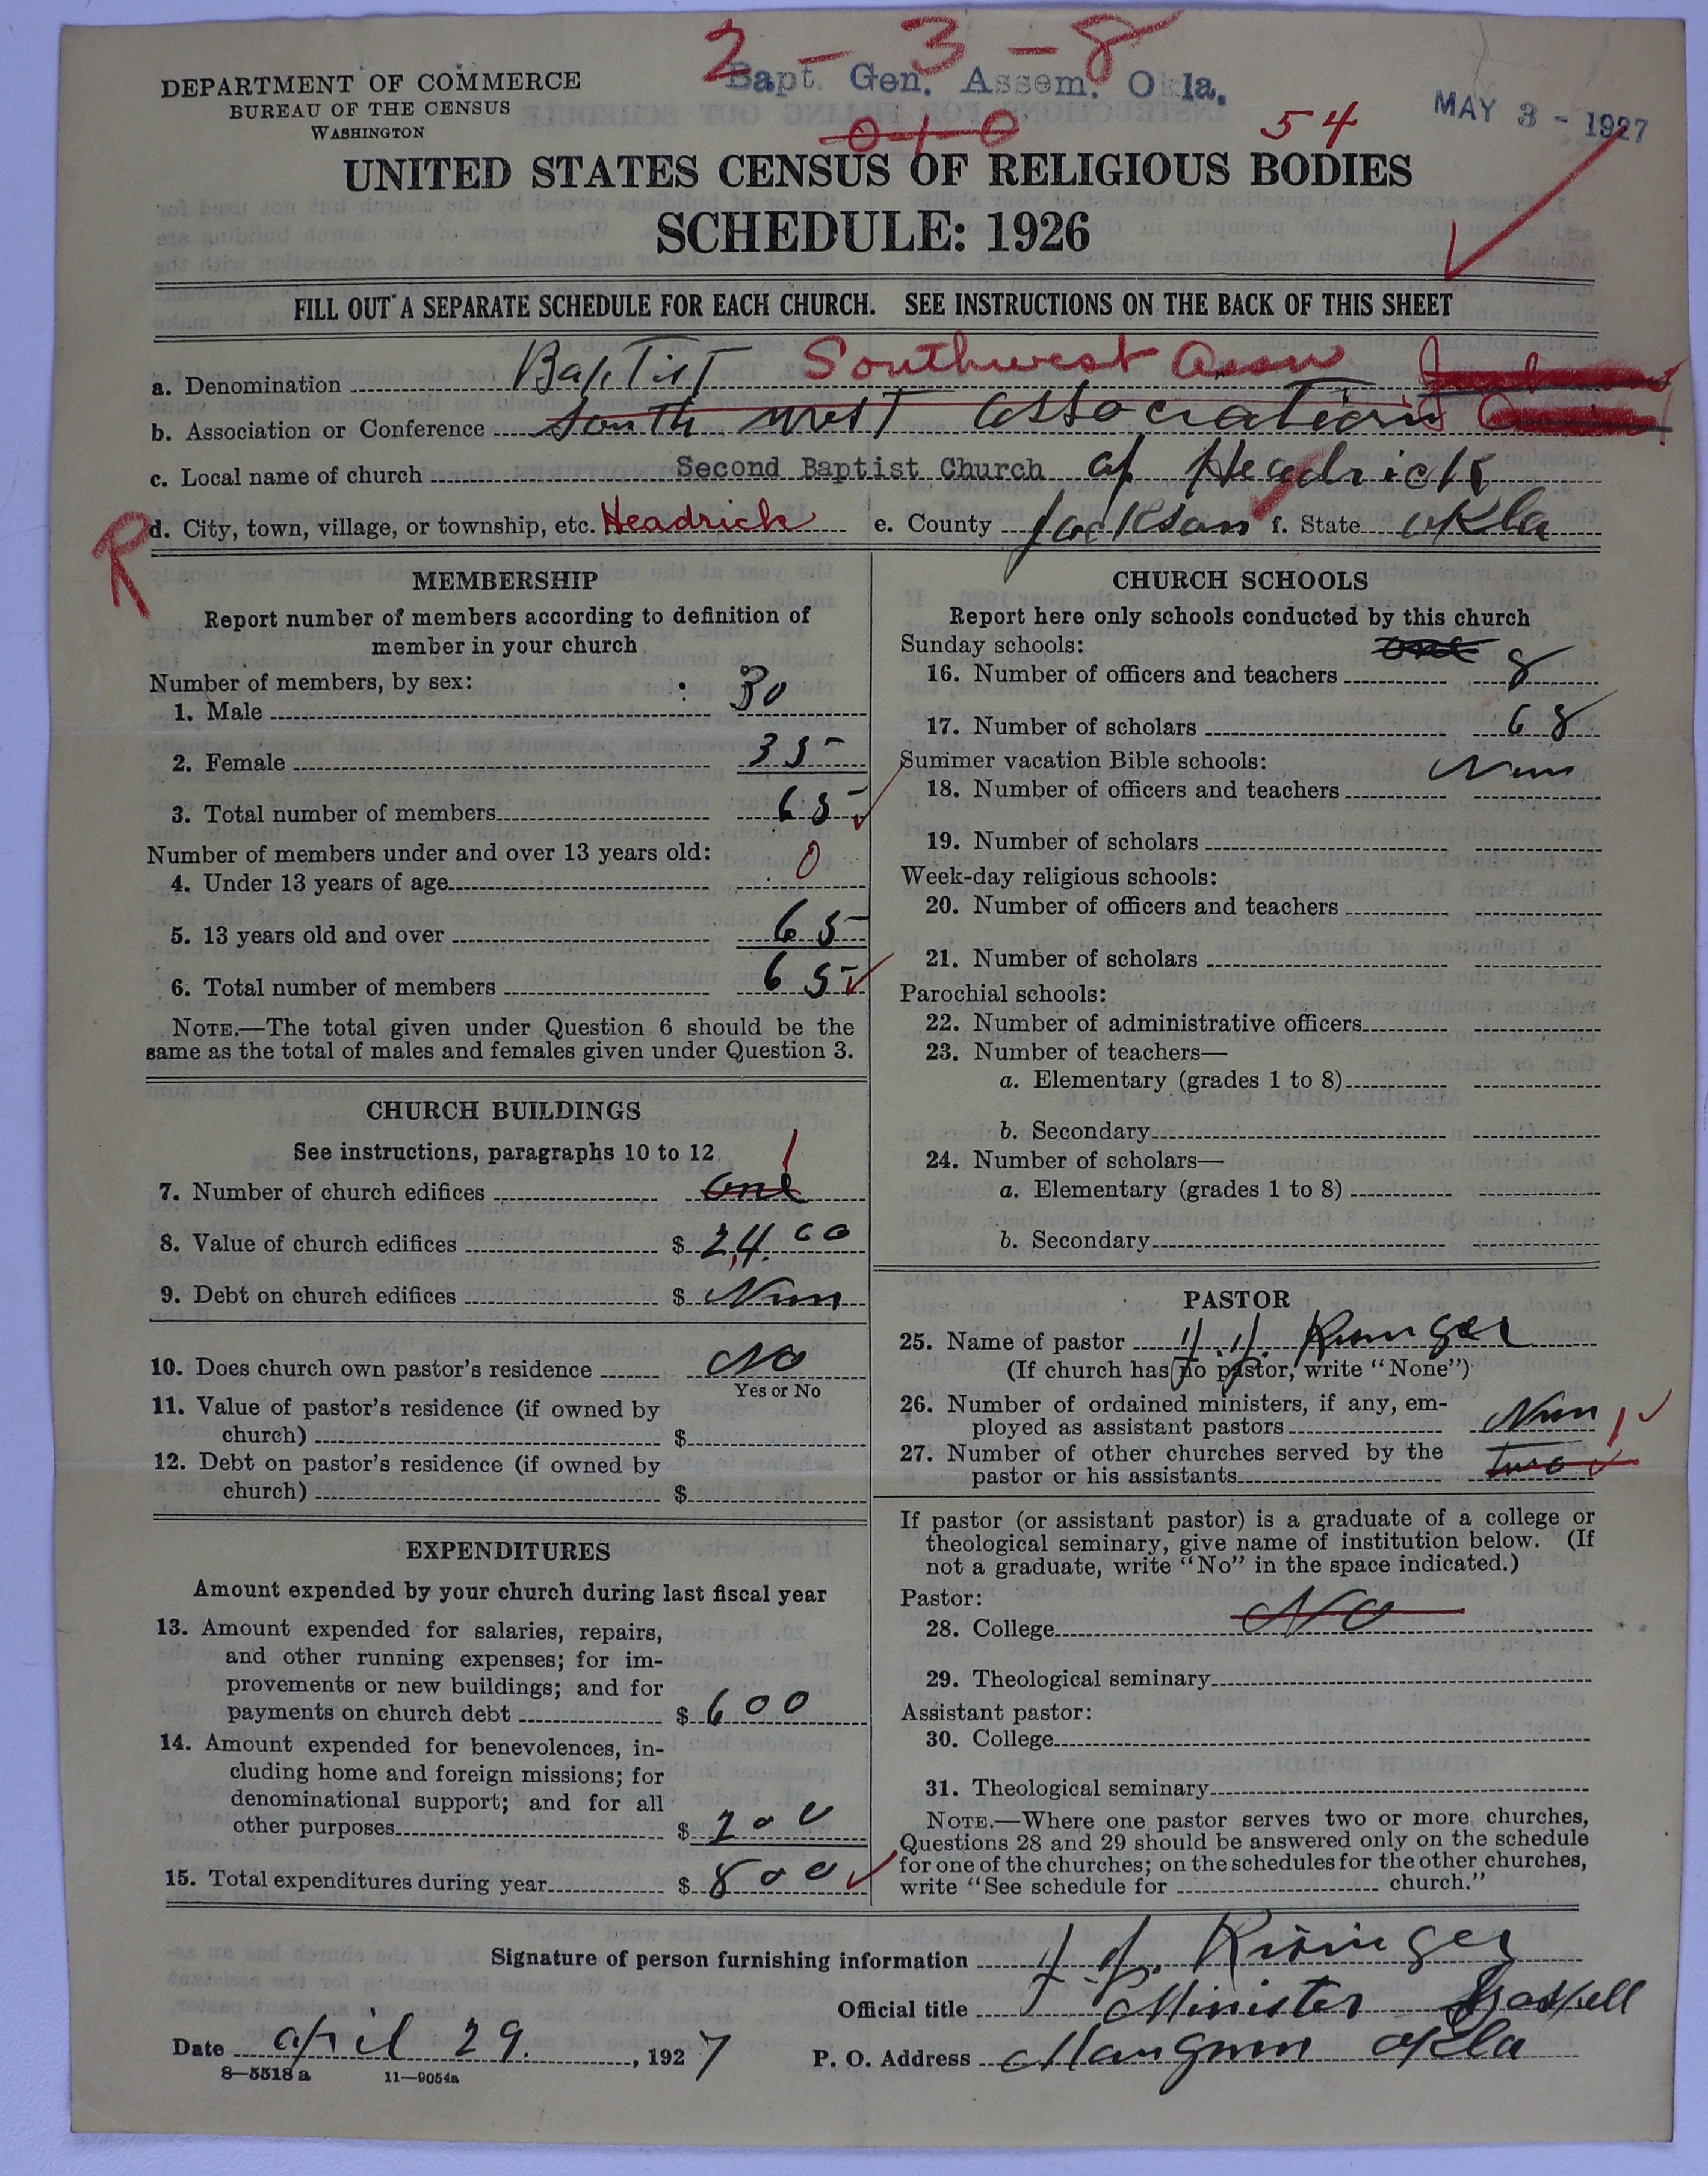 2 - 3 - 8
DEPARTMENT OF COMMERCE
BUREAU OF THE CENSUS
WASHINGTON
Bapt. Gen. Assem. Okla.
0-1-0
54
MAY 3 - 1927
UNITED STATES CENSUS OF RELIGIOUS BODIES
SCHEDULE: 1926
FILL OUT A SEPARATE SCHEDULE FOR EACH CHURCH. SEE INSTRUCTIONS ON THE BACK OF THIS SHEET
a. Denomination Baptist Southwest Assn
b. Association or Conference South west association
c. Local name of church Second Baptist Church of Headrick
R
d. City, town, village, or township, etc. Headrick e. County Jackson f. State Okla
MEMBERSHIP
Report number of members according to definition of
member in your church
Number of members, by sex:
1. Male 30
2. Female 35
3. Total number of members 65
Number of members under and over 13 years old:
4. Under 13 years of age 0
5. 13 years old and over 65
6. Total number of members 65
NOTE.—The total given under Question 6 should be the
same as the total of males and females given under Question 3.
CHURCH BUILDINGS
See instructions, paragraphs 10 to 12
1
7. Number of church edifices one
8. Value of church edifices $ 24.00
9. Debt on church edifices $ Nun
10. Does church own pastor's residence No
Yes or No
11. Value of pastor's residence (if owned by
church) $
12. Debt on pastor's residence (if owned by
church) $
EXPENDITURES
Amount expended by your church during last fiscal year
13. Amount expended for salaries, repairs,
and other running expenses; for im-
provements or new buildings; and for
payments on church debt $ 600
14. Amount expended for benevolences, in-
cluding home and foreign missions; for
denominational support; and for all
other purposes $ 200
15. Total expenditures during year $ 800
CHURCH SCHOOLS
Report here only schools conducted by this church
Sunday schools: one
16. Number of officers and teachers 8
17. Number of scholars 68
Summer vacation Bible schools: Nun
18. Number of officers and teachers
19. Number of scholars
Week-day religious schools:
20. Number of officers and teachers
21. Number of scholars
Parochial schools:
22. Number of administrative officers
23. Number of teachers—
a. Elementary (grades 1 to 8)
b. Secondary
24. Number of scholars—
a. Elementary (grades 1 to 8)
b. Secondary
PASTOR
25. Name of pastor
(If church has no pastor, write "None")
26. Number of ordained ministers, if any, em-
ployed as assistant pastors Nun
1
27. Number of other churches served by the
pastor or his assistants two
If pastor (or assistant pastor) is a graduate of a college or
theological seminary, give name of institution below. (If
not a graduate, write "No" in the space indicated.)
Pastor:
28. College No
29. Theological seminary
Assistant pastor:
30. College
31. Theological seminary
NOTE.—Where one pastor serves two or more churches,
Questions 28 and 29 should be answered only on the schedule
for one of the churches; on the schedules for the other churches,
write "See schedule for church."
Signature of person furnishing information
Official title Minister
Date april 29. , 1927 P. O. Address Mangum Okla
8—5518a 11—9054a